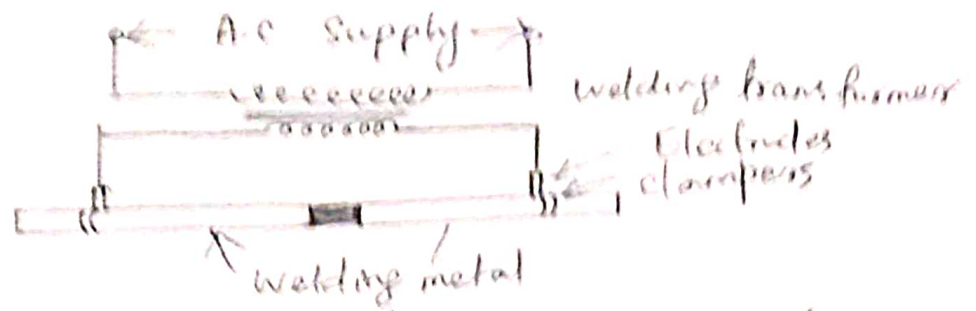 A.C Supply
Welding transformer
Electrodes
clampers
Welding metal